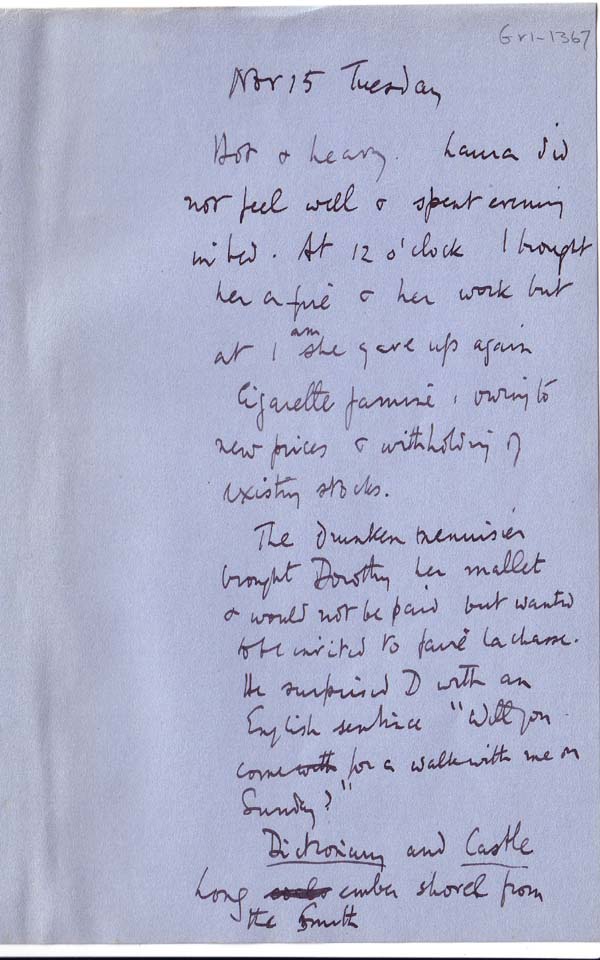 Gri-1367
Nov 15 Tuesday
Hot & heavy. Laura did
not feel well & spent evening
in bed. At 12 o'clock I brought
her a fire & her work but
at 1 am she gave up again
Cigarette famine, owing to
new prices & withholding of
existing stocks.
The drunken menuisier
brought Dorothy her mallet
& would not be paid but wanted
to be invited to faire la chasse.
He surprised D with an
English sentence "Will you
come with for a walk with me on
Sunday?"
Dictionary and Castle
Long ember shovel from
the Smith